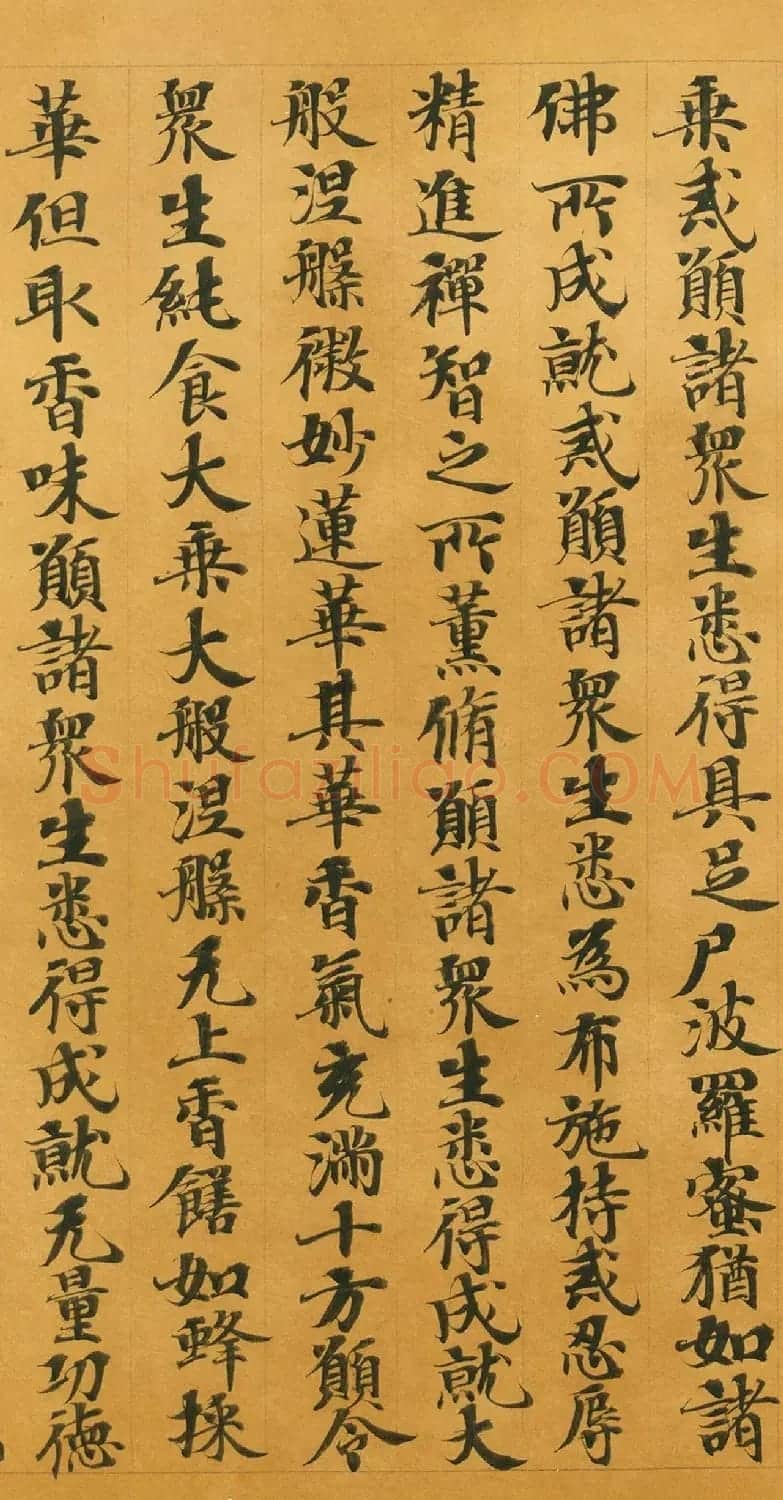 乘戒願諸衆生悉得具足尸波羅蜜猶如諸
佛所成就戒願諸衆生悉為布施持戒忍辱
精進禪智之所薰脩願諸衆生悉得成就大
般涅槃微妙蓮華其華香氣充滿十方願令
衆生純食大乘大般涅槃无上香饍如蜂採
華但取香味願諸衆生悉得成就无量功德
Shufaziliao.COM